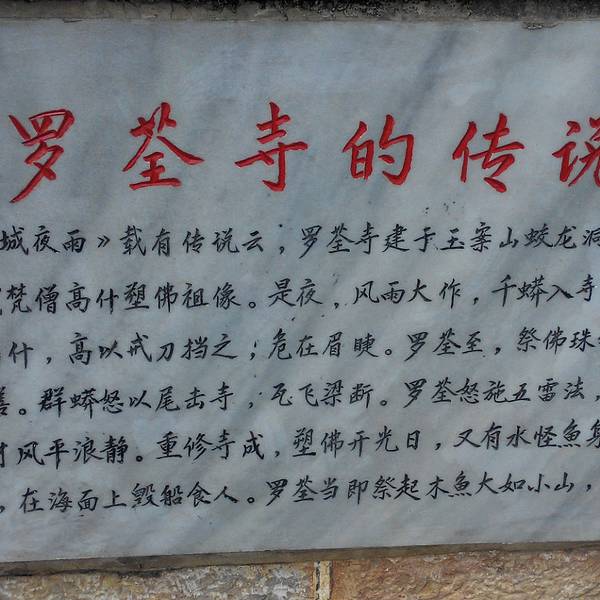 罗荃寺的传说
城夜雨》载有传说云，罗荃寺建于玉案山蛟龙洞
梵僧高什塑佛祖像。是夜，风雨大作，千蟒入寺
什，高以戒刀挡之；危在眉睫。罗荃至，祭佛珠
善。群蟒怒以尾击寺，瓦飞梁断。罗荃怒施五雷法，
时风平浪静。重修寺成，塑佛开光日，又有水怪魚身
，在海面上毁船食人。罗荃当即祭起木魚大如小山，